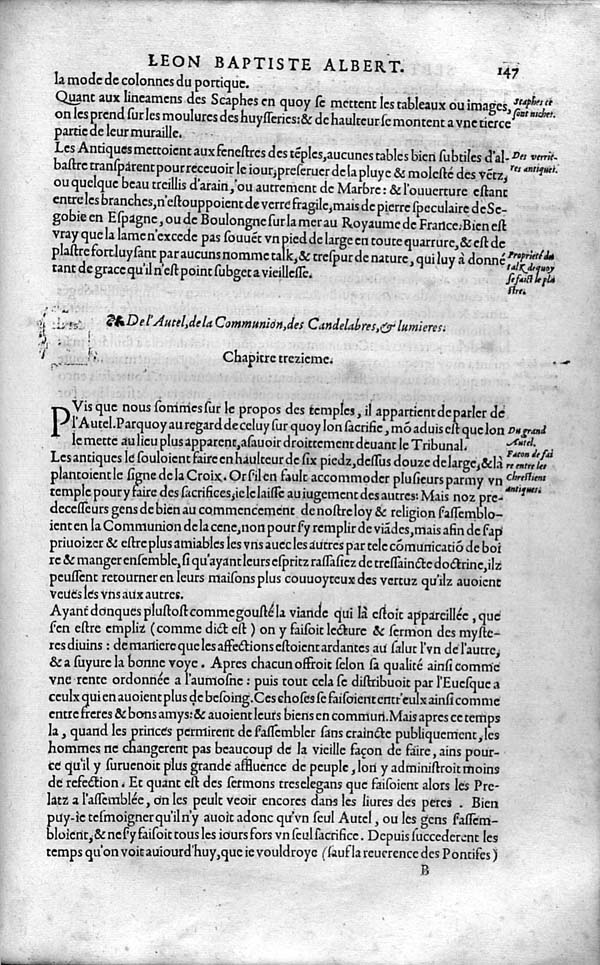 LEON BAPTISTE ALBERT. 147
la mode de colonnes du portique.
Quant aux lineamens des Scaphes en quoy se mettent les tableaux ou images,
on les prend sur les moulures des huysseries: & de haulteur se montent a vne tierce
partie de leur muraille.
Scaphes et
sont niches.
Les Antiques mettoient aux fenestres des tẽples, aucunes tables bien subtiles d'al-
bastre transparent pour receuoir le iour, preseruer de la pluye & molesté des vẽtz,
ou quelque beau treillis d'arain, ou autrement de Marbre: & l'ouuerture estant
entre les branches, n'estouppoient de verre fragile, mais de pierre speculaire de Se-
gobie en Espagne, ou de Boulongne sur la mer au Royaume de France. Bien est
vray que la lame n'excede pas souuẽt vn pied de large en toute quarrure, & est de
plastre fort luysant par aucuns nomme talk, & tres pur de nature, qui luy à donné
tant de grace qu'il n'est point subget a vieillesse.
Des verrie-
res antiques.
Proprieté du
talk, de quoy
se faict le pla
stre.
De l'Autel, de la Communion, des Candelabres, & lumieres.
Chapitre trezieme.
PVis que nous sommes sur le propos des temples, il appartient de parler de
l'Autel. Parquoy au regard de celuy sur quoy lon sacrifie, mõ aduis est que lon
le mette au lieu plus apparent, asauoir droittement deuant le Tribunal.
Les antiques le souloient faire en haulteur de six piedz, dessus douze de large, & là
plantoient le signe de la Croix. Or s'il en fault accommoder plusieurs parmy vn
temple pour y faire des sacrifices, ie le laisse au iugement des autres: Mais noz pre-
decesseurs gens de bien au commencement de nostre loy & religion s'assemblo-
ient en la Communion de la cene, non pour s'y remplir de viãdes, mais afin de s'ap
priuoizer & estre plus amiables les vns auec les autres par tele cõmunicatiõ de boi
re & manger ensemble, si qu'ayant leurs espritz rassasiez de tressaincte doctrine, ilz
peussent retourner en leurs maisons plus couuoyteux des vertuz qu'ilz auoient
veues les vns aux autres.
Du grand
Autel.
Façon de fai
re entre les
Chrestiens
antiques.
Ayant donques plustost comme gousté la viande qui là estoit appareillée, que
s'en estre empliz (comme dict est) on y faisoit lecture & sermon des myste-
res diuins: de maniere que les affections estoient ardantes au salut l'vn de l'autre,
& a suyure la bonne voye. Apres chacun offroit selon sa qualité ainsi comme
vne rente ordonnée a l'aumosne: puis tout cela se distribuoit par l'Euesque a
ceulx qui en auoient plus de besoing. Ces choses se faisoient entr'eulx ainsi comme
entre freres & bons amys: & auoient leurs biens en commun. Mais apres ce temps
la, quand les princes permirent de s'assembler sans craincte publiquement, les
hommes ne changerent pas beaucoup de la vieille façon de faire, ains pour-
ce qu'il y suruenoit plus grande affluence de peuple, lon y administroit moins
de refection. Et quant est des sermons treselegans que faisoient alors les Pre-
latz a l'assemblée, on les peult veoir encores dans les liures des peres. Bien
puy-ie tesmoigner qu'il n'y auoit adonc qu'vn seul Autel, ou les gens s'assem-
bloient, & ne s'y faisoit tous les iours fors vn seul sacrifice. Depuis succederent les
temps qu'on voit auiourd'huy, que ie vouldroye (sauf la reuerence des Pontifes)
B